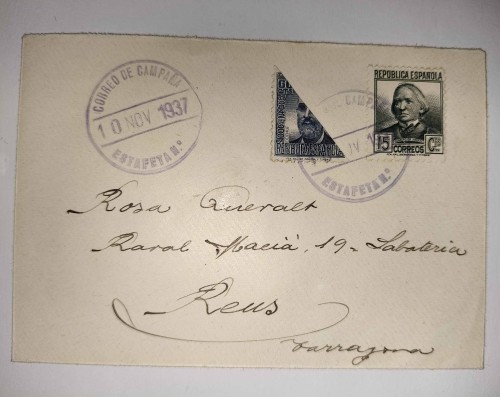 CORREO DE CAMPAÑA
10 NOV 1937
ESTAFETA N.º
REPUBLICA ESPAÑOLA
15 CTS
CORREOS
CAMPAÑA
ESTAFETA N.º
Rosa Queralt
Raval Macià, 19 = Sabateria
Reus
Tarragona